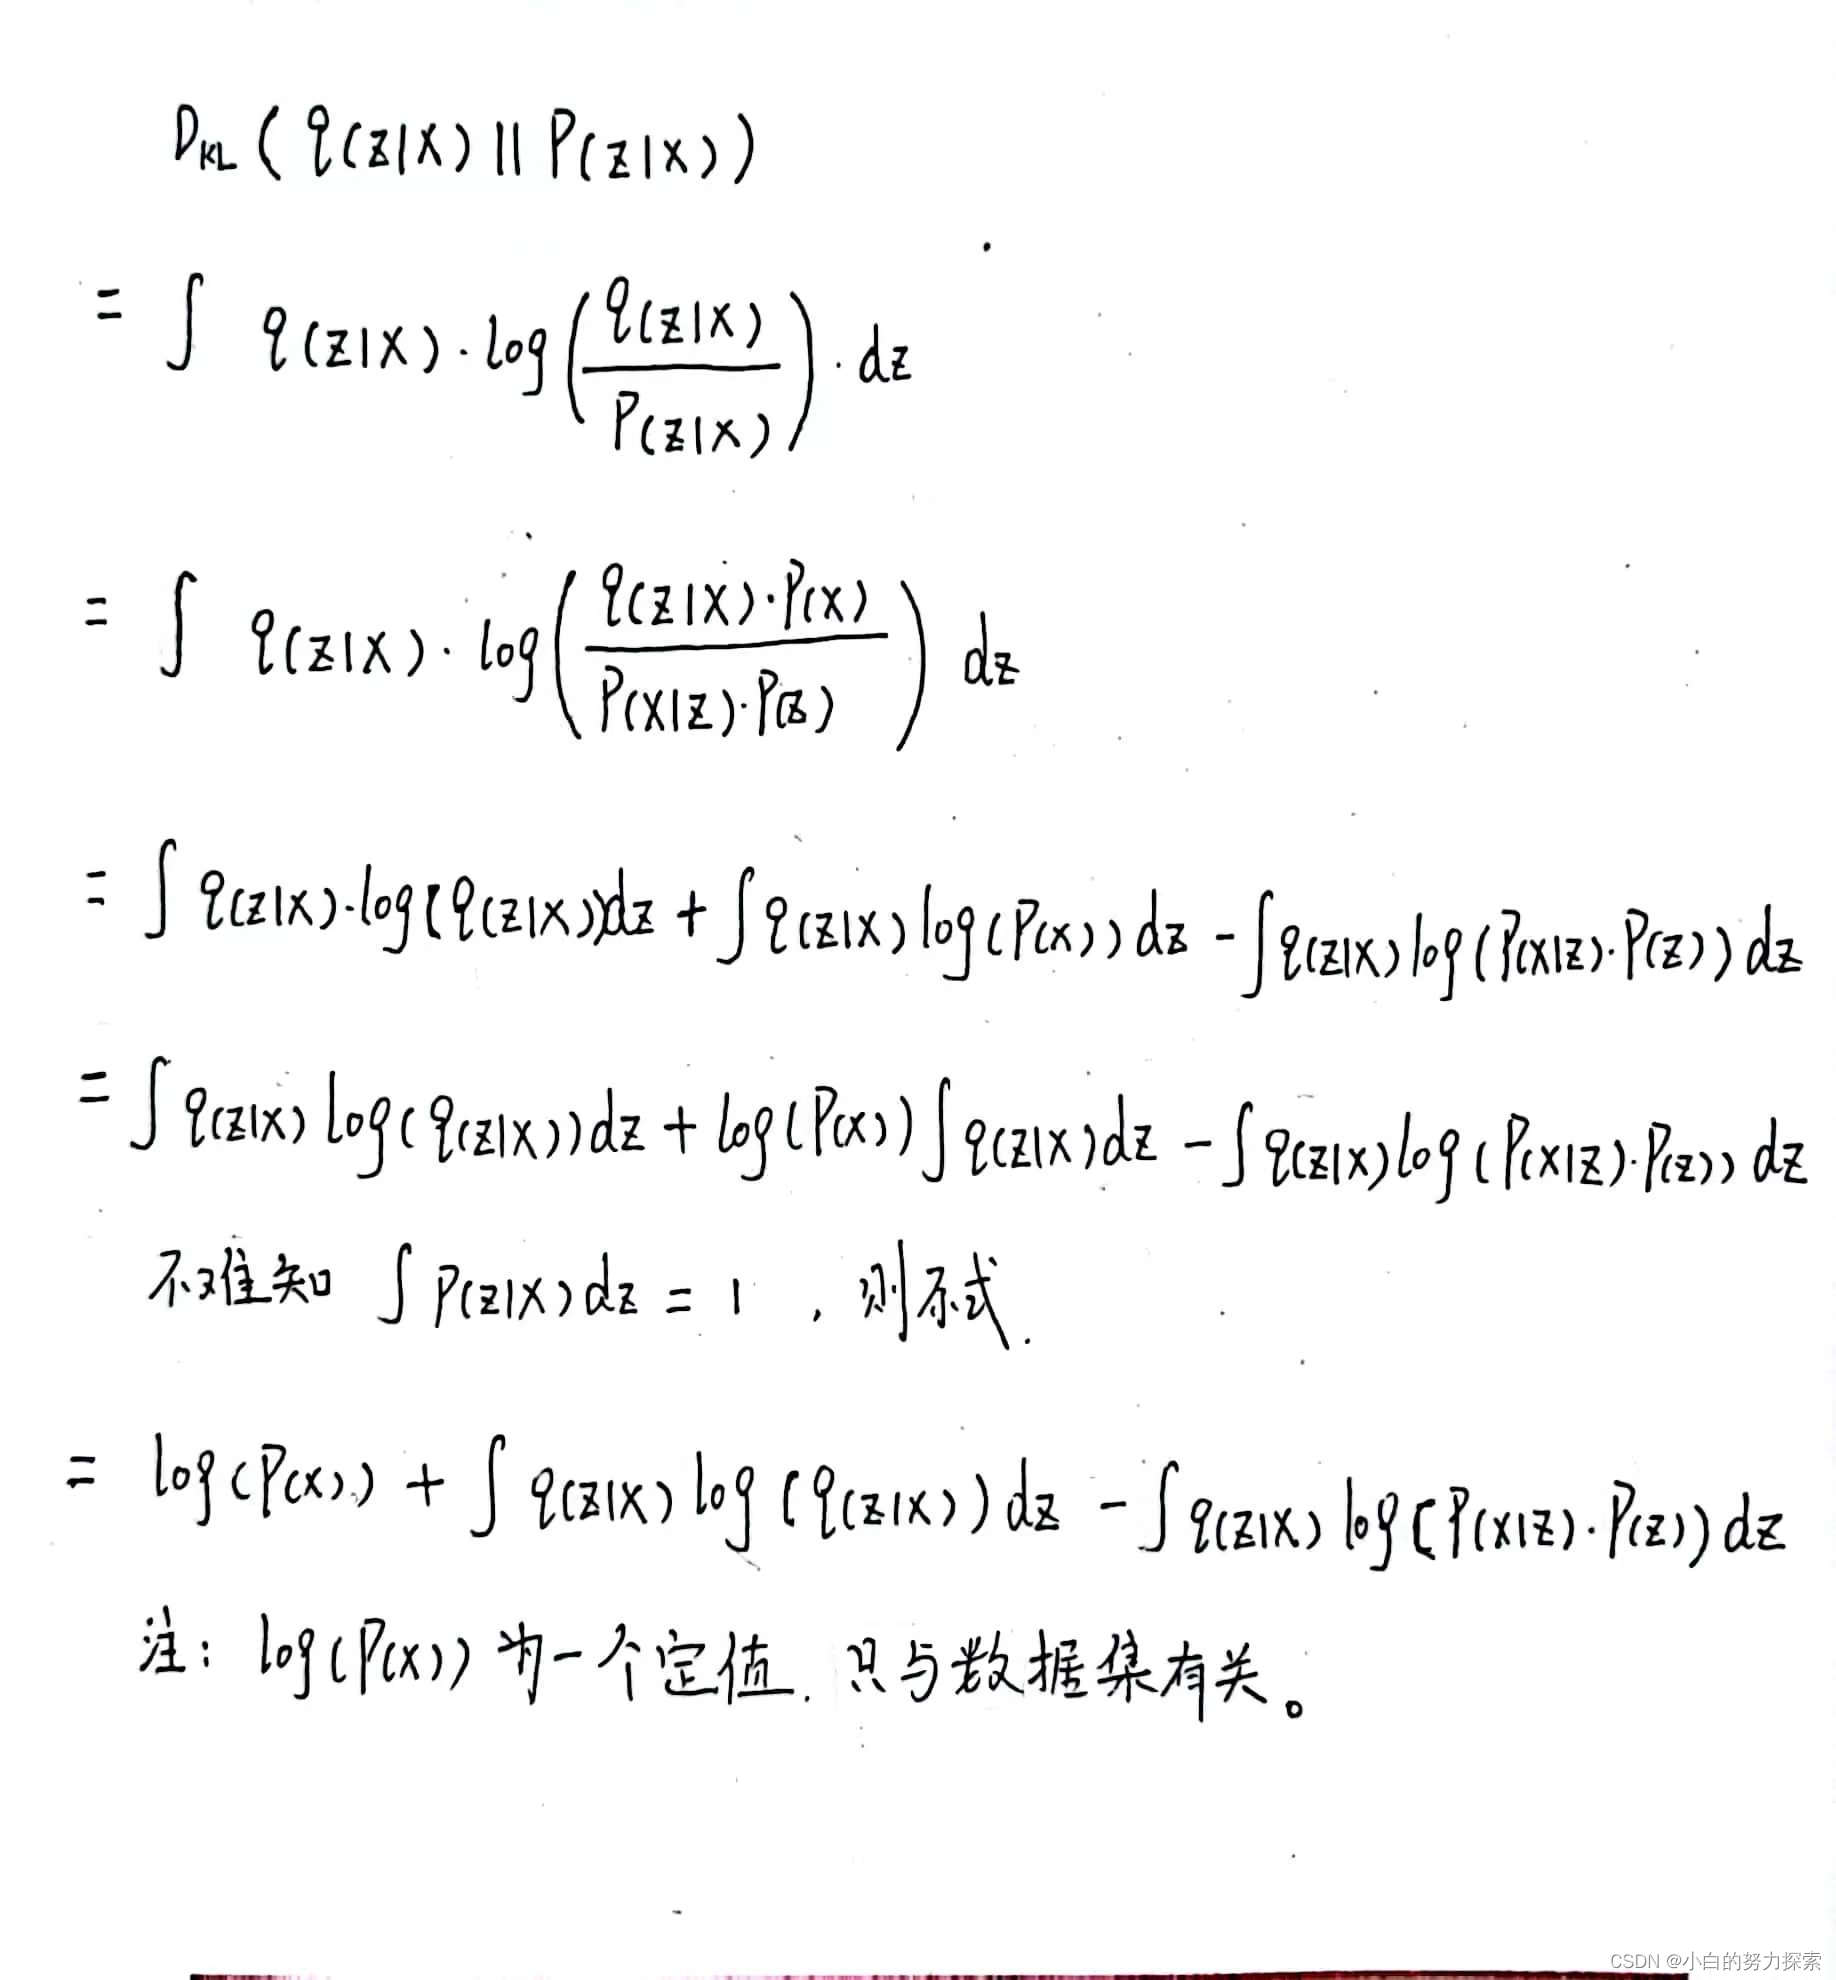 D_KL ( q(z|x) || P(z|x) )
= ∫ q(z|x) · log( q(z|x) / P(z|x) ) · dz
= ∫ q(z|x) · log( q(z|x)·P(x) / P(x|z)·P(z) ) dz
= ∫ q(z|x)·log(q(z|x))dz + ∫ q(z|x) log(P(x)) dz - ∫ q(z|x) log(P(x|z)·P(z)) dz
= ∫ q(z|x) log(q(z|x))dz + log(P(x)) ∫ q(z|x)dz - ∫ q(z|x) log(P(x|z)·P(z)) dz
不难知 ∫ P(z|x) dz = 1 , 则原式.
= log(P(x)) + ∫ q(z|x) log(q(z|x)) dz - ∫ q(z|x) log[P(x|z)·P(z)) dz
注: log(P(x)) 为一个定值. 只与数据集有关。
CSDN @小白的努力探索